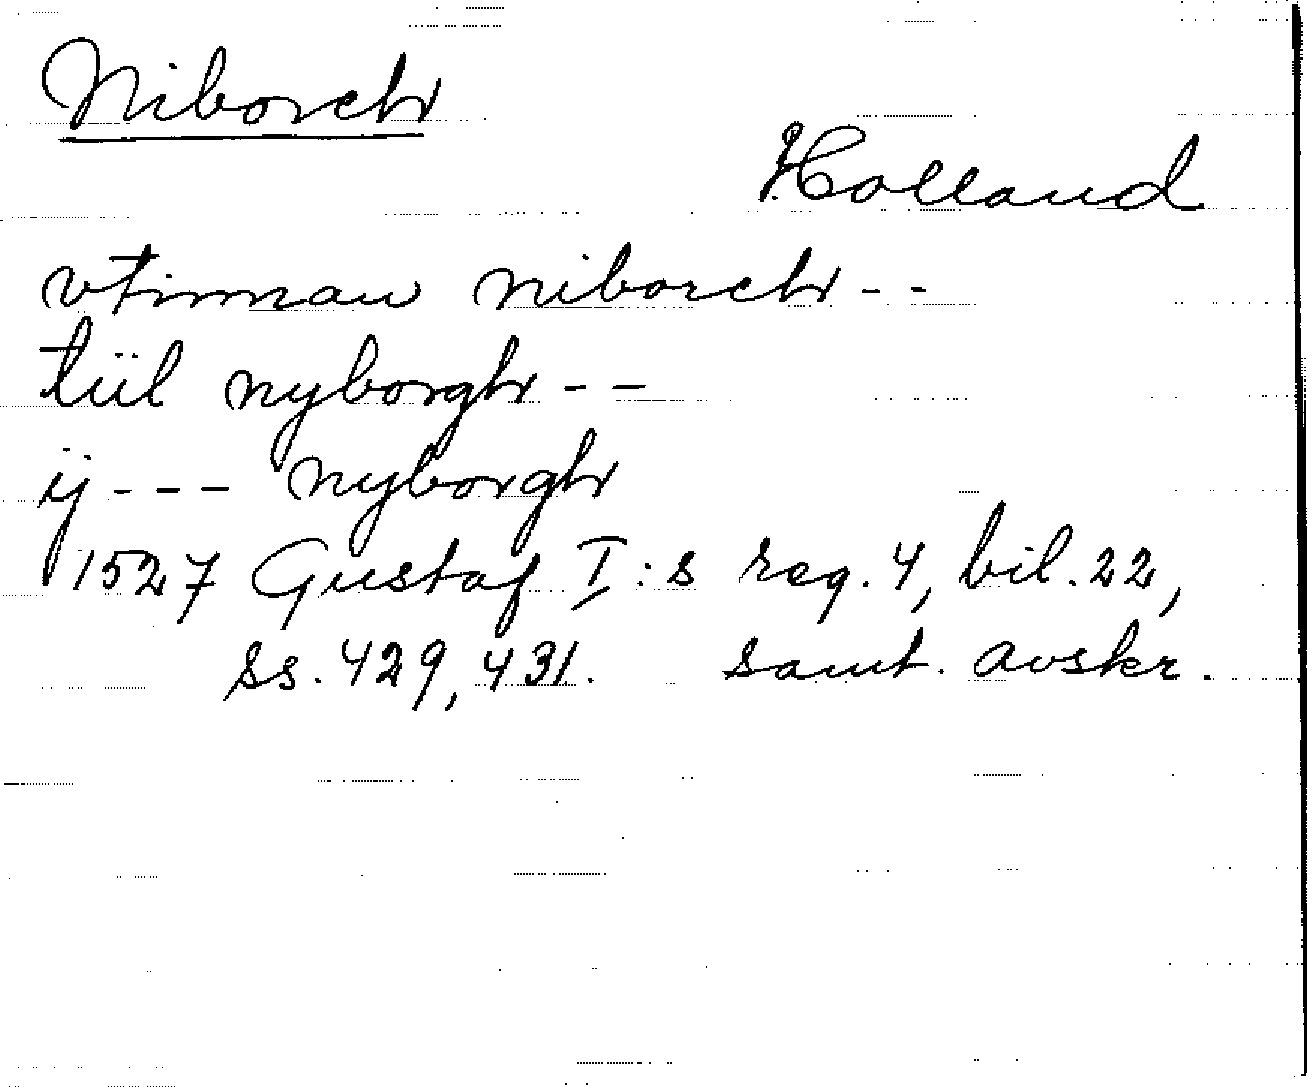 Niborch
Holland
vtinnan niborch - -
tiil nyborgh - -
ÿ - - - nyborgh
1527 Gustaf I:s reg. 4, bil. 22,
ss. 429, 431. samt. avskr.